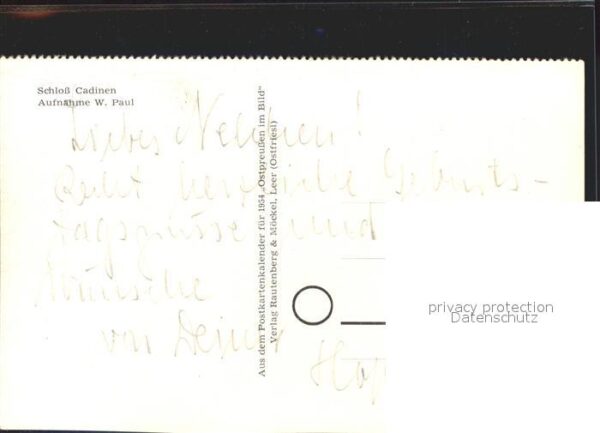 Schloß Cadinen
Aufnahme W. Paul
Liebes !
Recht herzliche Geburts-
tagsgrüsse und
Wünsche
von Deiner
Aus dem Postkartenkalender für 1954 „Ostpreußen im Bild"
Verlag Rautenberg & Möckel, Leer (Ostfriesl)
privacy protection
Datenschutz